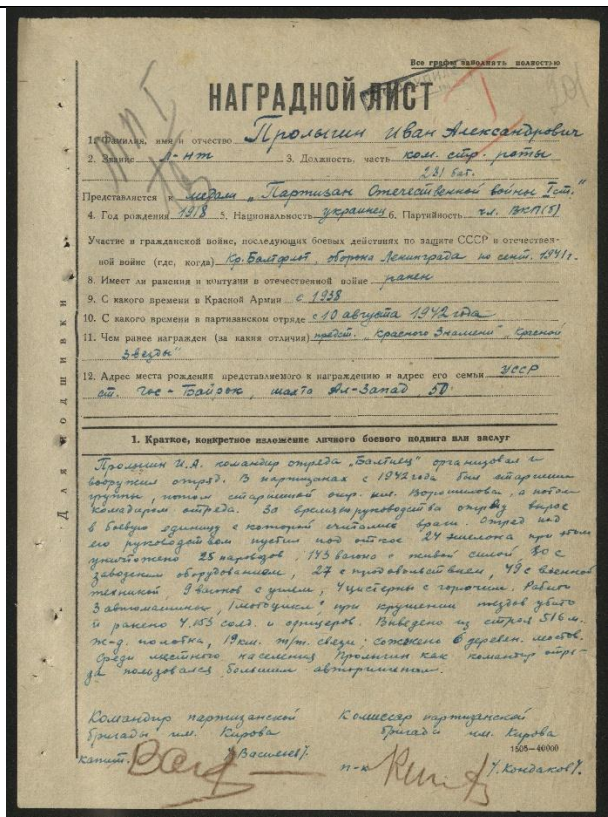 Все графы заполнять полностью
НАГРАДНОЙ ЛИСТ
1. Фамилия, имя и отчество Пролыгин Иван Александрович
2. Звание л-нт 3. Должность, часть ком. стр. роты
281 бат.
Представляется к медали „Партизан Отечественной войны I ст."
4. Год рождения 1918 5. Национальность украинец 6. Партийность чл. ВКП(б)
Участие в гражданской войне, последующих боевых действиях по защите СССР в отечествен-
ной войне (где, когда) Кр. Балтфлот, оборона Ленинграда по сент. 1941 г.
8. Имеет ли ранения и контузии в отечественной войне ранен
9. С какого времени в Красной Армии с 1938
10. С какого времени в партизанском отряде с 10 августа 1942 года
11. Чем ранее награжден (за какия отличия) предст. „Красного Знамени", „Красной
Звезды"
12. Адрес места рождения представляемого к награждению и адрес его семьи УССР
ст. Байрок, шахта Запад 50.
Для подшивки
1. Краткое, конкретное изложение личного боевого подвига или заслуг
Пролыгин И.А. командир отряда „Балтиец" организовал и
вооружил отряд. В партизанах с 1942 года был старшим
группы, потом старшиной отр. им. Ворошилова, а потом
командиром отряда. За время руководства отряд вырос
в боевую единицу с которой считались враги. Отряд под
его руководством пустил под откос 24 эшелона при этом
уничтожено 25 паровозов, 173 вагона с живой силой, 80 с
заводским оборудованием, 27 с продовольствием, 49 с военной
техникой 9 вагонов с углем, 4 цистерны с горючим. Разбито
3 автомашины, 1 мотоцикл, при крушении поездов убито
и ранено 4.153 солд. и офицеров. Выведено из строя 516 м.
ж-д. полотна, 19 км. т/т. связи, сожжено 6 деревен. мостов.
Среди местного населения Пролыгин как командир отря-
да пользовался большим авторитетом.
Командир партизанской
бригады им. Кирова
капит. /Васильев/.
Комиссар партизанской
бригады им. Кирова
п-к /Кондаков/.
1505—40000